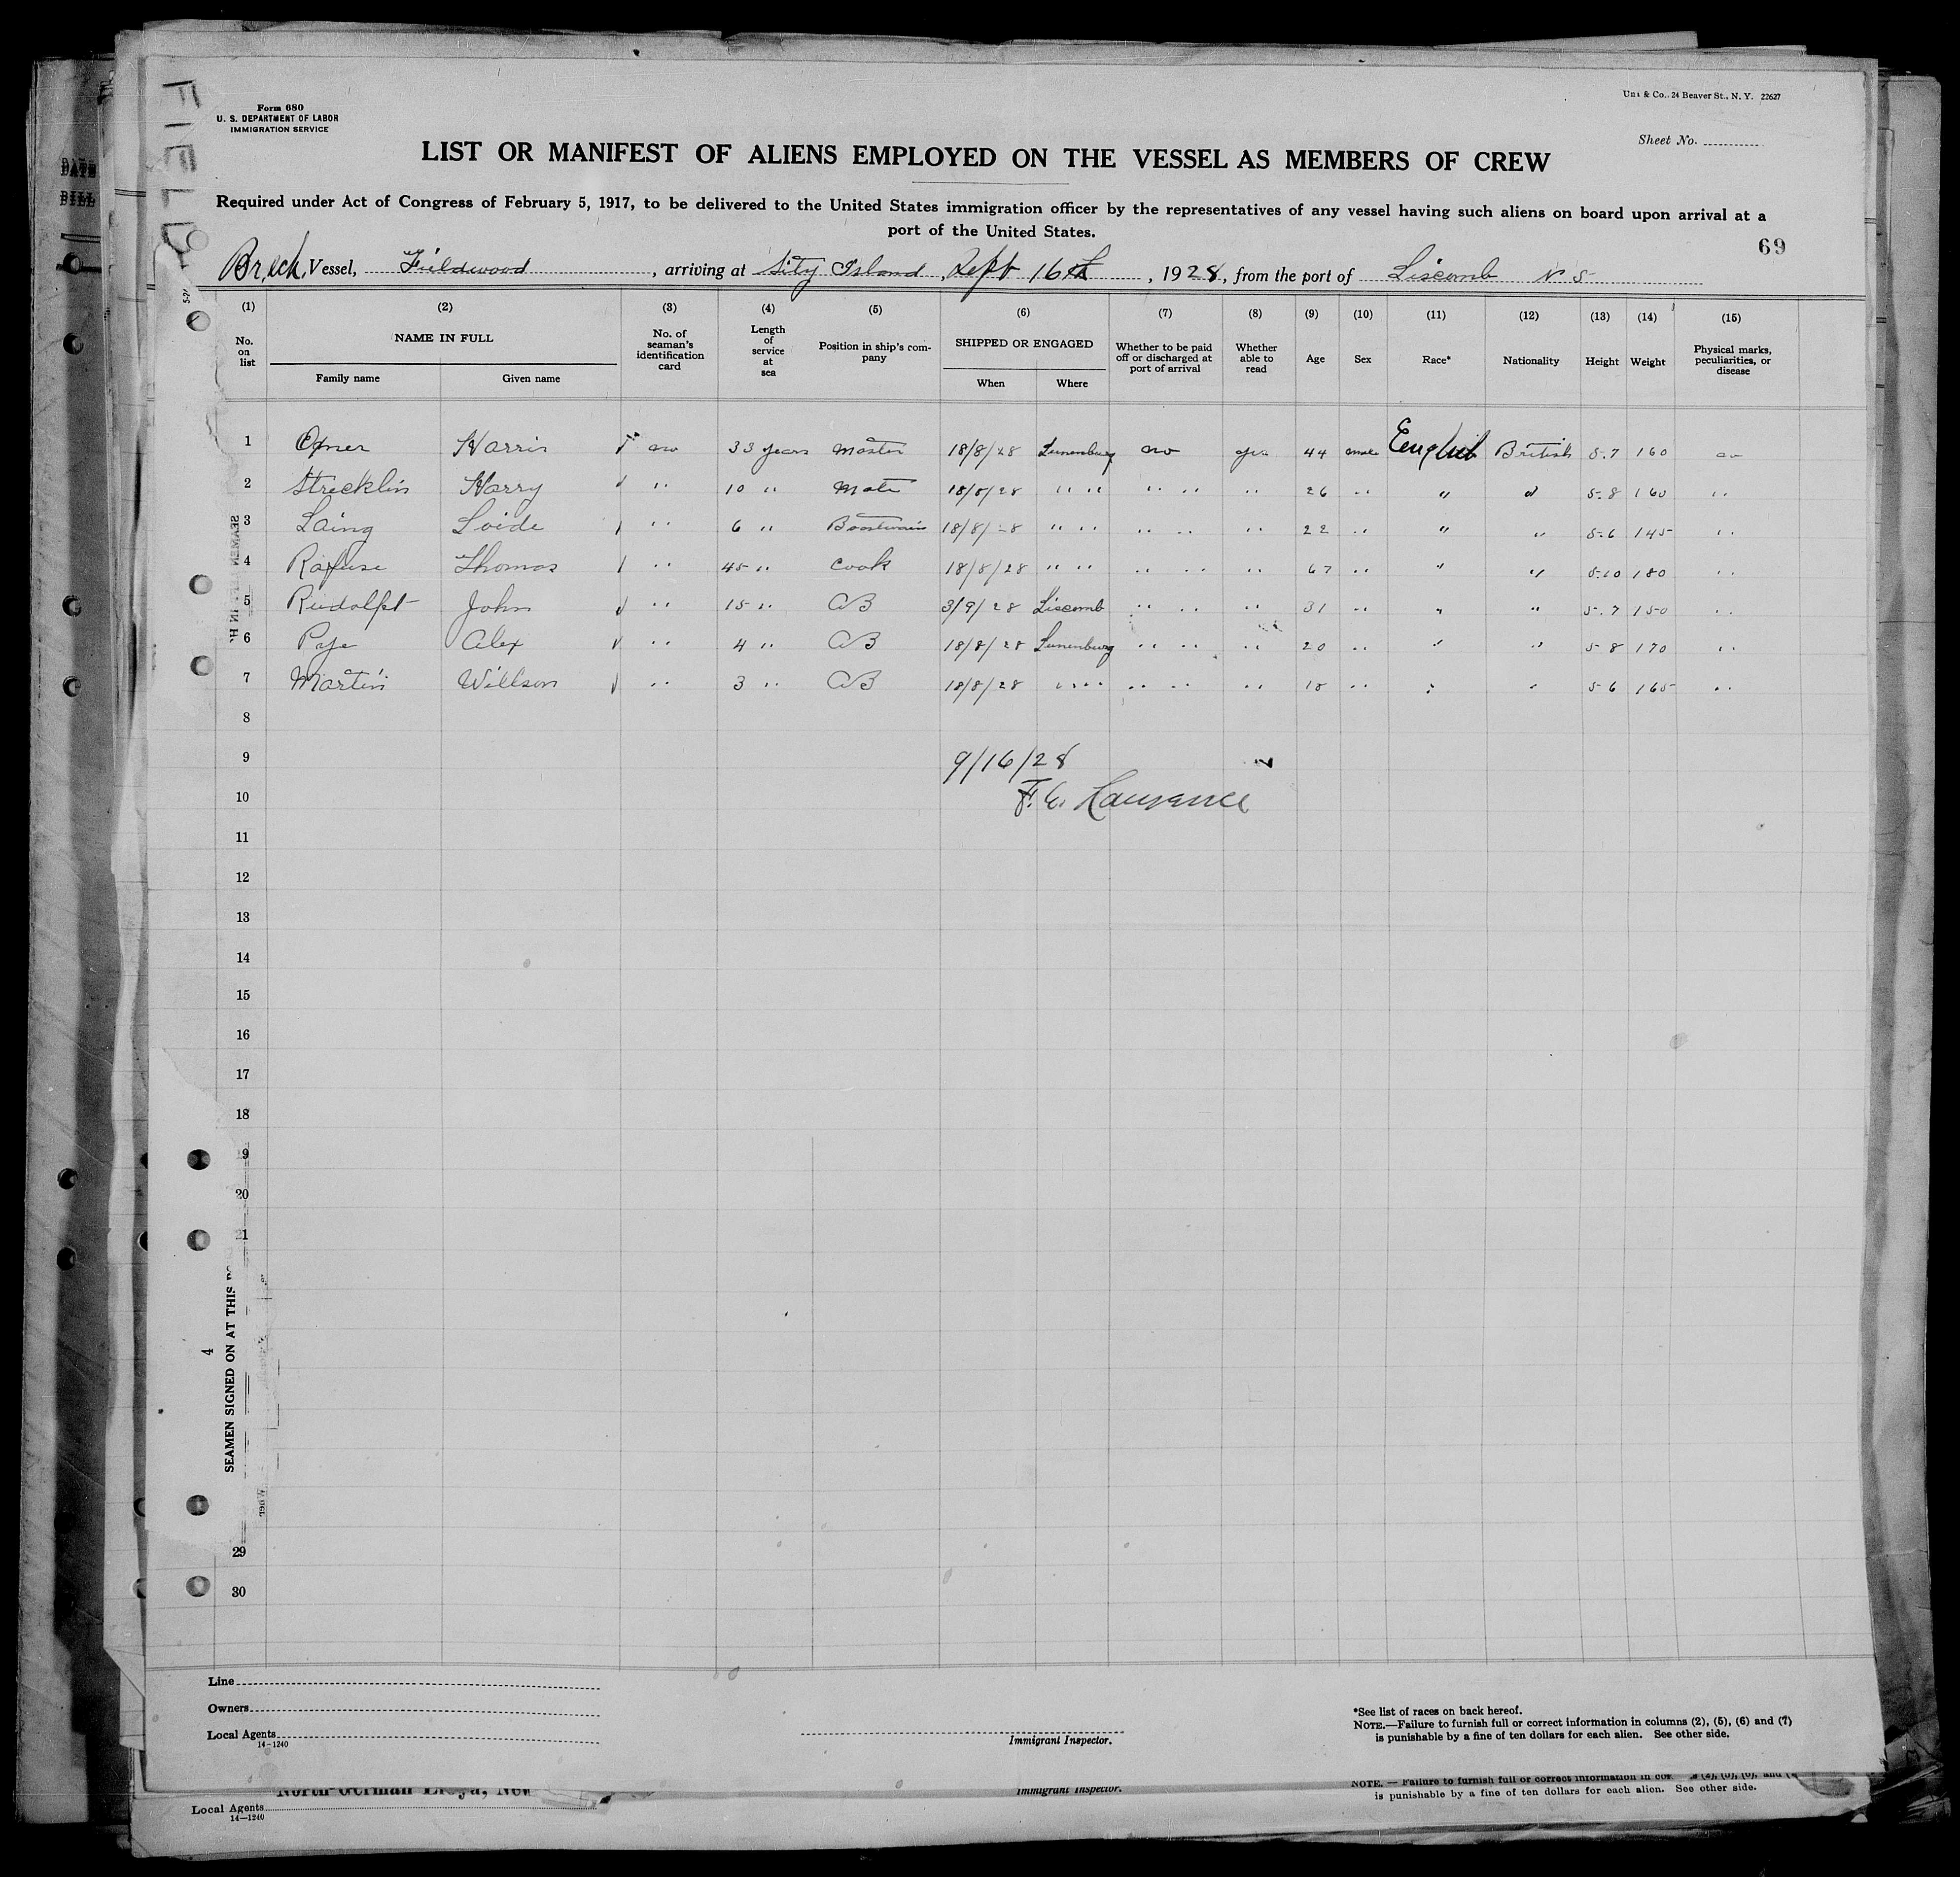 FIELD
Form 680
U. S. DEPARTMENT OF LABOR
IMMIGRATION SERVICE
& Co., 24 Beaver St., N. Y. 22627
Sheet No.
LIST OR MANIFEST OF ALIENS EMPLOYED ON THE VESSEL AS MEMBERS OF CREW
Required under Act of Congress of February 5, 1917, to be delivered to the United States immigration officer by the representatives of any vessel having such aliens on board upon arrival at a
port of the United States.
69
Vessel, Fieldwood, arriving at Sity Island, Sept 16th, 1928, from the port of Liscomb N S
(1) (2) (3) (4) (5) (6) (7) (8) (9) (10) (11) (12) (13) (14) (15)
No. on list NAME IN FULL Family name Given name No. of seaman's identification card Length of service at sea Position in ship's company SHIPPED OR ENGAGED When Where Whether to be paid off or discharged at port of arrival Whether able to read Age Sex Race* Nationality Height Weight Physical marks, peculiarities, or disease
1 Harris no 33 years Master 18/8/28 Lunenburg no yes 44 male English British 5.7 160 no
2 Strecklin Harry " 10 " Mate 18/8/28 " " " " " 26 " " " 5.8 160 "
3 Laing Loide " 6 " 18/8/28 " " " " " 22 " " " 5.6 145 "
4 Rafuse Thomas " 45 " Cook 18/8/28 " " " " " 67 " " " 5.10 180 "
5 Rudolph John " 15 " AB 3/9/28 Liscomb " " " 31 " " " 5.7 150 "
6 Pye Alex " 4 " AB 18/8/28 Lunenburg " " " 20 " " " 5 8 170 "
7 Martin Willson " 3 " AB 18/8/28 " " " " " 18 " " " 5 6 165 "
8
9 9/16/28
10
11
12
13
14
15
16
17
18
19
20
21
4
SEAMEN SIGNED ON AT THIS
29
30
Line
Owners
Local Agents
14-1240
Immigrant Inspector.
*See list of races on back hereof.
NOTE.—Failure to furnish full or correct information in columns (2), (5), (6) and (7)
is punishable by a fine of ten dollars for each alien. See other side.
Immigrant Inspector.
NOTE. — Failure to furnish full or correct information in
is punishable by a fine of ten dollars for each alien. See other side.
Local Agents
14—1240